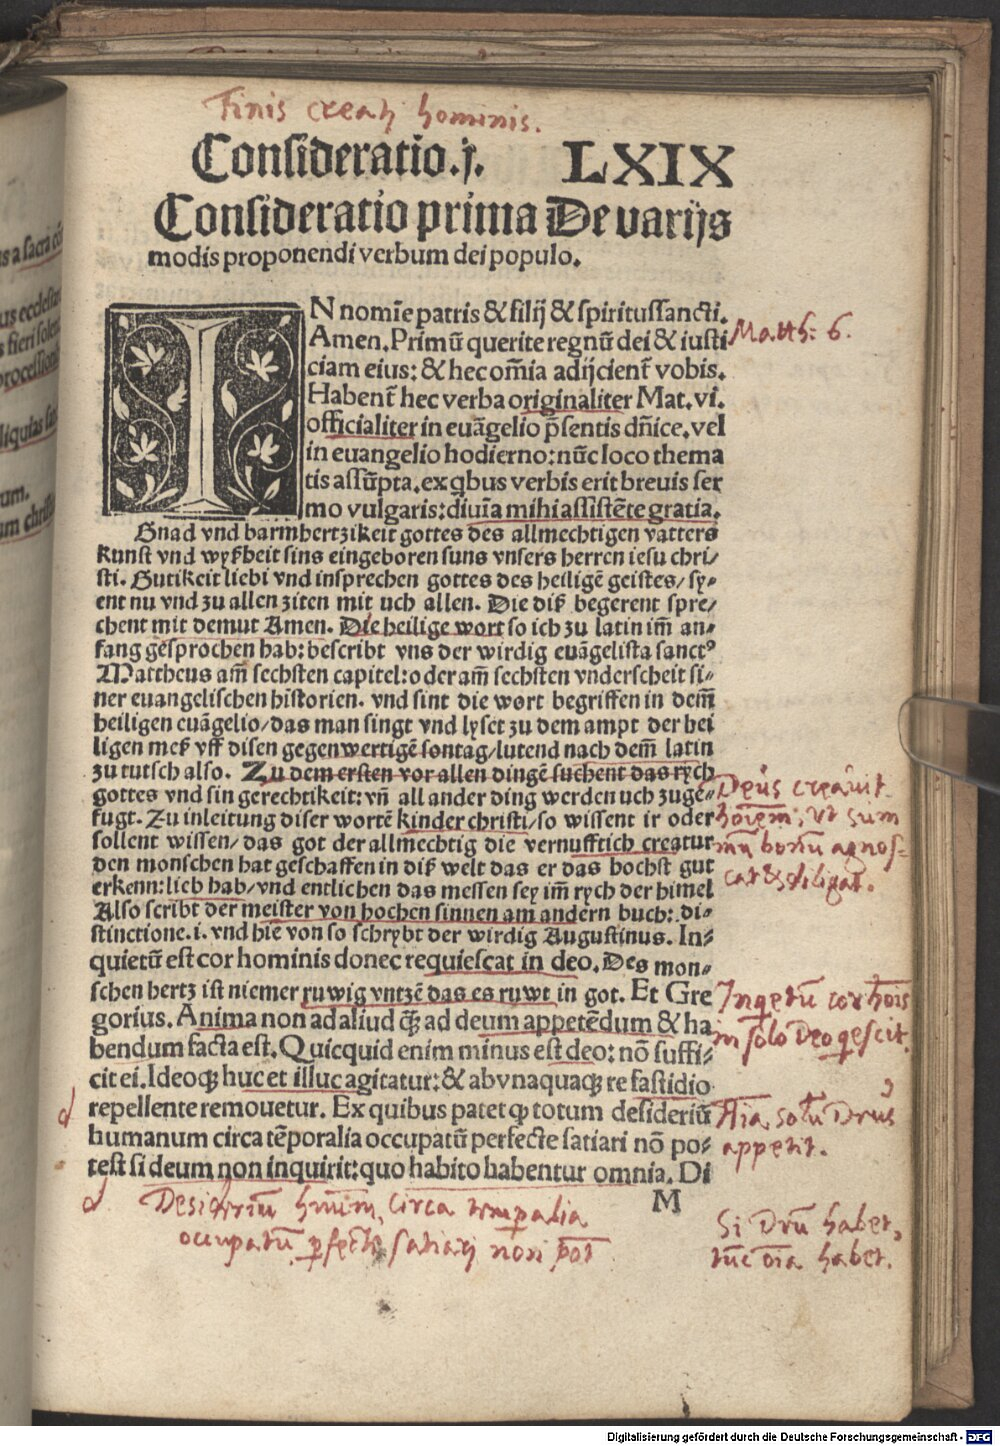 Finis creati hominis.
Consideratio.j. LXIX
Consideratio prima De varijs
modis proponendi verbum dei populo.
IN nomīe patris & filij & spiritussancti.
Amen. Primū querite regnū dei & iusti
ciam eius: & hec om̄ia adijcient̄ vobis.
Habent̄ hec verba originaliter Mat. vi.
officialiter in euāgelio p̄sentis dn̄ice. vel
in euangelio hodierno: nūc loco thema
tis assūpta. ex qbus verbis erit brevis ser
mo vulgaris: diuīa mihi assistēte gratia.
Matth: 6.
Gnad vnd barmhertzikeit gottes des allmechtigen vatters
kunst vnd wyßheit sins eingeboren suns vnsers herren iesu chri-
sti. Gutikeit liebi vnd insprechen gottes des heiligē geistes/ sy-
ent nu vnd zu allen ziten mit uch allen. Die diß begerent spre/
chent mit demut Amen. Die heilige wort so ich zu latin im̄ an-
fang gesprochen hab: bescribt vns der wirdig euāgelista sanctꝰ
Mattheus am̄ sechsten capitel: oder am̄ sechsten vnderscheit si-
ner euangelischen historien. vnd sint die wort begriffen in dem̄
heiligen euāgelio/ das man singt vnd lyset zu dem ampt der hei
ligen meß vff disen gegenwertigē sontag/ lutend nach dem̄ latin
zu tutsch also. Zu dem ersten vor allen dingē suchent das rych
gottes vnd sin gerechtikeit: vn̄ all ander ding werden uch zuge-
fugt. Zu inleitung diser wortē kinder christi/ so wissent ir oder
sollent wissen/ das got der allmechtig die vernufftich creatur
den monschen hat geschaffen in diß welt das er das hochst gut
erkenn: lieb hab/ vnd entlichen das messen sey im̄ rych der himel
Also scribt der meister von hochen sinnen am andern buch: di-
stinctione. i. vnd hie von so schrybt der wirdig Augustinus. In-
quietū est cor hominis donec requiescat in deo. Des mon-
schen hertz ist niemer ruwig vntzē das es ruwt in got. Et Gre
gorius. Anima non ad aliud q̄ꝫ ad deum appetēdum & ha
bendum facta est. Quicquid enim minus est deo: nō suffi-
cit ei. Ideoqꝫ huc et illuc agitatur: & ab vnaquaqꝫ re fastidio
repellente remouetur. Ex quibus patet ꝙ totum desideriū
humanum circa tēporalia occupatū perfecte satiari nō po-
test si deum non inquirit: quo habito habentur omnia. Di
M
Deus creauit
hoīem, vt sum
mū bonū agnos-
cat & diligat.
Inqetū cor hoīs
in solo Deo qescit.
Aīa solū Deū
appetit.
Si Deū habet,
tūc oīa habet.
Desideriū hūm, circa temporalia
occupatū perfecte satiari non pōt